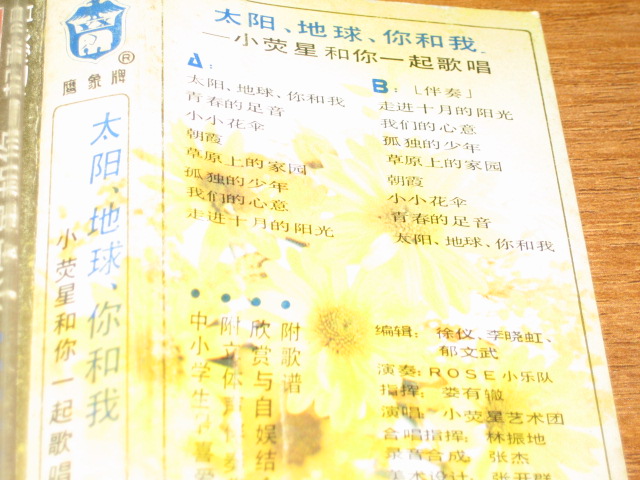 鹰象牌
®
太阳、地球、你和我
小荧星和你一起歌唱
太阳、地球、你和我
—小荧星和你一起歌唱
A:
太阳、地球、你和我
青春的足音
小小花伞
朝霞
草原上的家园
孤独的少年
我们的心意
走进十月的阳光
B:「伴奏」
走进十月的阳光
我们的心意
孤独的少年
草原上的家园
朝霞
小小花伞
青春的足音
太阳、地球、你和我
附歌谱
欣赏与自娱结
附立体声伴奏
中小学生最喜爱
编辑:徐仪、李晓虹、
郁文武
演奏:ROSE小乐队
指挥:娄有辙
演唱:小荧星艺术团
合唱指挥:林振地
录音合成:张杰
美术设计:张开群